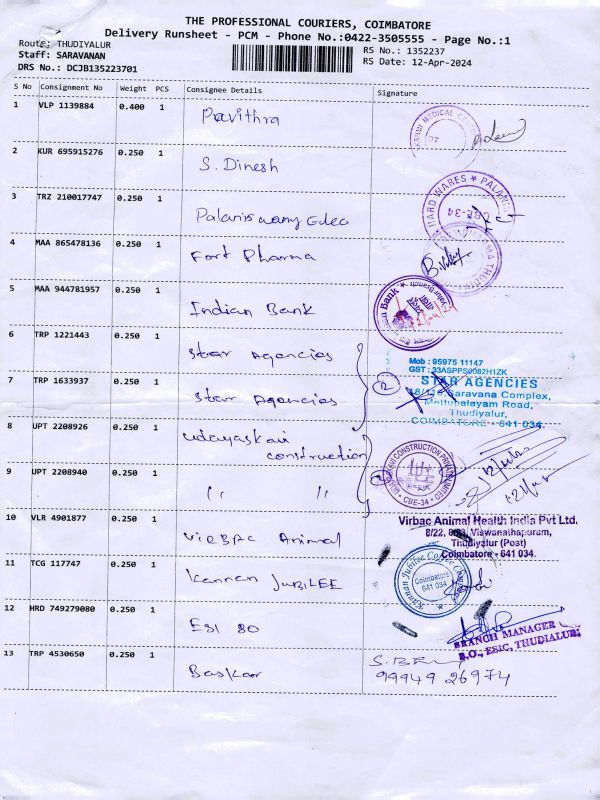 THE PROFESSIONAL COURIERS, COIMBATORE
Delivery Runsheet - PCM - Phone No.:0422-3505555 - Page No.:1
Route: THUDIYALUR
RS No.: 1352237
Staff: SARAVANAN
RS Date: 12-Apr-2024
DRS No.: DCJB135223701
S No Consignment No Weight PCS Consignee Details Signature
1 VLP 1139884 0.400 1 Pavithra
MEDICAL
2 KUR 695915276 0.250 1 S. Dinesh
3 TRZ 210017747 0.250 1 Palaniswamy Edec
HARD WARES * PALAN
CBE-34
4 MAA 865478136 0.250 1 Fort Pharma
B.
5 MAA 944781957 0.250 1 Indian Bank
Bank
6 TRP 1221443 0.250 1 Star Agencies
7 TRP 1633937 0.250 1 Star Agencies
2
Mob : 95975 11147
GST : 33ASPPS0082H1ZK
STAR AGENCIES
Saravana Complex,
Mettupalayam Road,
Thudiyalur,
COIMBATORE - 641 034.
8 UPT 2208926 0.250 1 Udayaskar construction
9 UPT 2208940 0.250 1 " "
2
CONSTRUCTION PRIVATE LIMITED
CBE-34
10 VLR 4901877 0.250 1 VIRBAC Animal
Virbac Animal Health India Pvt Ltd.
8/22, 8/23, Viswanathapuram,
Thudiyalur (Post)
Coimbatore - 641 034.
11 TCG 117747 0.250 1 Kannan JUBILEE
Kannan Jubilee Coffee Company
Coimbatore
641 034
12 HRD 749279080 0.250 1 ESI SO
BRANCH MANAGER
B.O., ESIC, THUDIALUR
13 TRP 4530650 0.250 1 Baskar
99949 26974